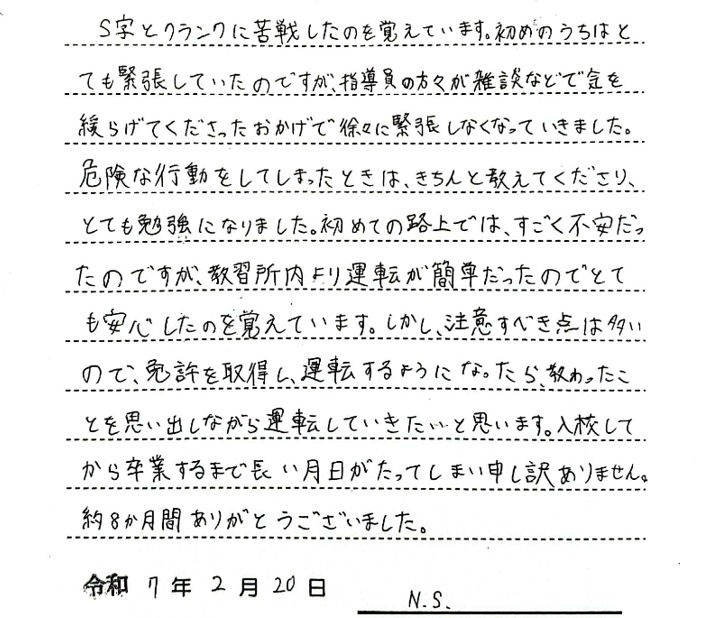 S字とクランクに苦戦したのを覚えています。初めのうちはと
ても緊張していたのですが、指導員の方々が雑談などで気を
緩らげてくださったおかげで徐々に緊張しなくなっていきました。
危険な行動をしてしまったときは、きちんと教えてくださり、
とても勉強になりました。初めての路上では、すごく不安だっ
たのですが、教習所内より運転が簡単だったのでとて
も安心したのを覚えています。しかし、注意すべき点は多い
ので、免許を取得し、運転するようになったら、教わったこ
とを思い出しながら運転していきたいと思います。入校して
から卒業するまで長い月日がたってしまい申し訳ありません。
約8か月間ありがとうございました。
令和 7 年 2 月 20 日
N.S.